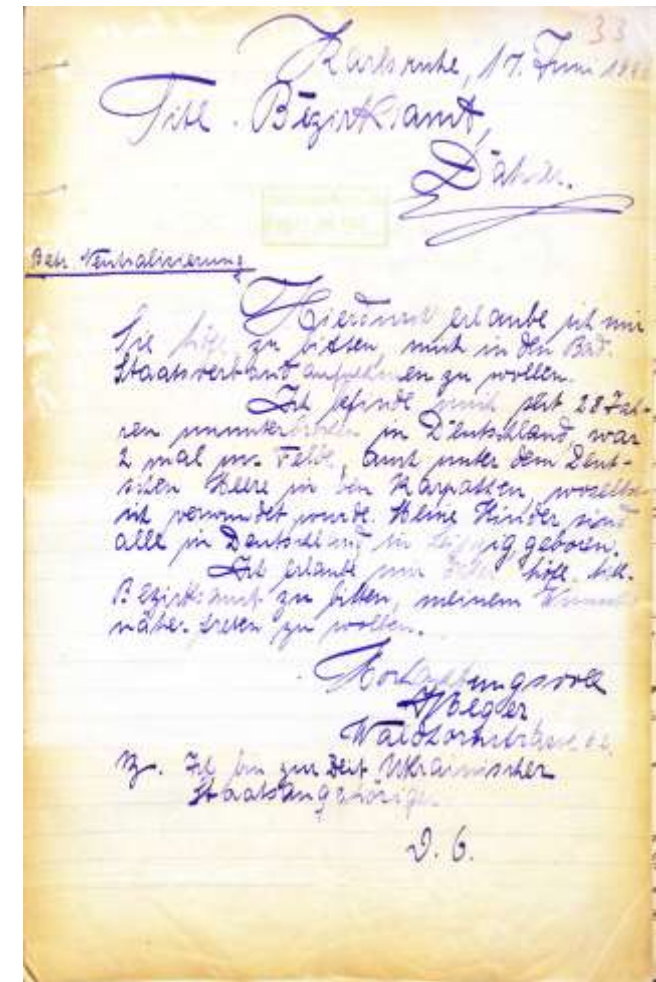 33
Karlsruhe, 17. Juni
Titl. Bezirksamt,
Dahier.
Betr. Neutralisierung
Hierdurch erlaube ich mir
Sie höfl. zu bitten, mich in den Bad.
Staatsverband aufnehmen zu wollen.
Ich befinde mich seit 28 Jah-
ren ununterbrochen in Deutschland, war
2 mal im Felde, auch unter dem Deut-
schen Heere in den Karpatten, woselbst
ich verwundet wurde. Meine Kinder sind
alle in Deutschland in Leipzig geboren.
Ich erlaube mir höfl. titl.
Bezirksamt zu bitten, meinem Wunsche
näher treten zu wollen.
Hochachtungsvoll
Waldhornstrasse 62.
Ich bin zur Zeit Ukrainischer
Staatsangehöriger
D. O.